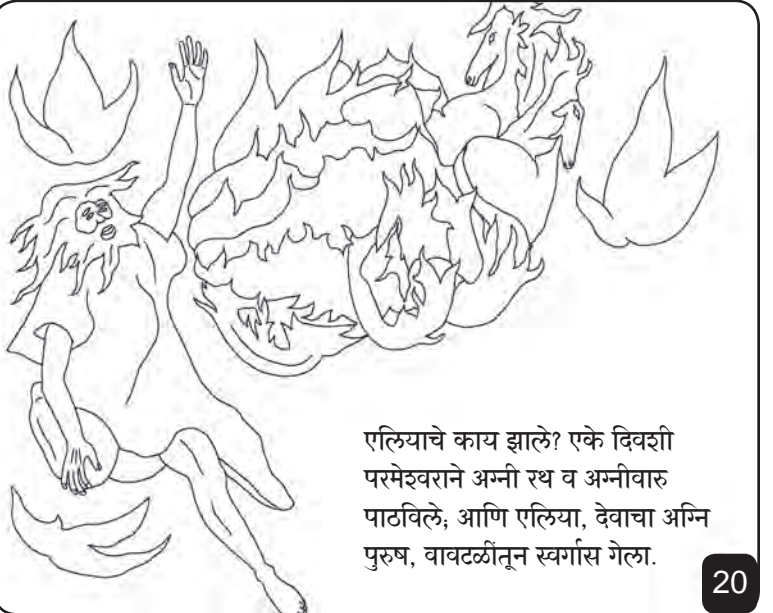 एलियाचे काय झाले? एके दिवशी
परमेश्वराने अग्नी रथ व अग्नीवारु
पाठविले; आणि एलिया, देवाचा अग्नि
पुरुष, वावटळींतून स्वर्गास गेला.
20